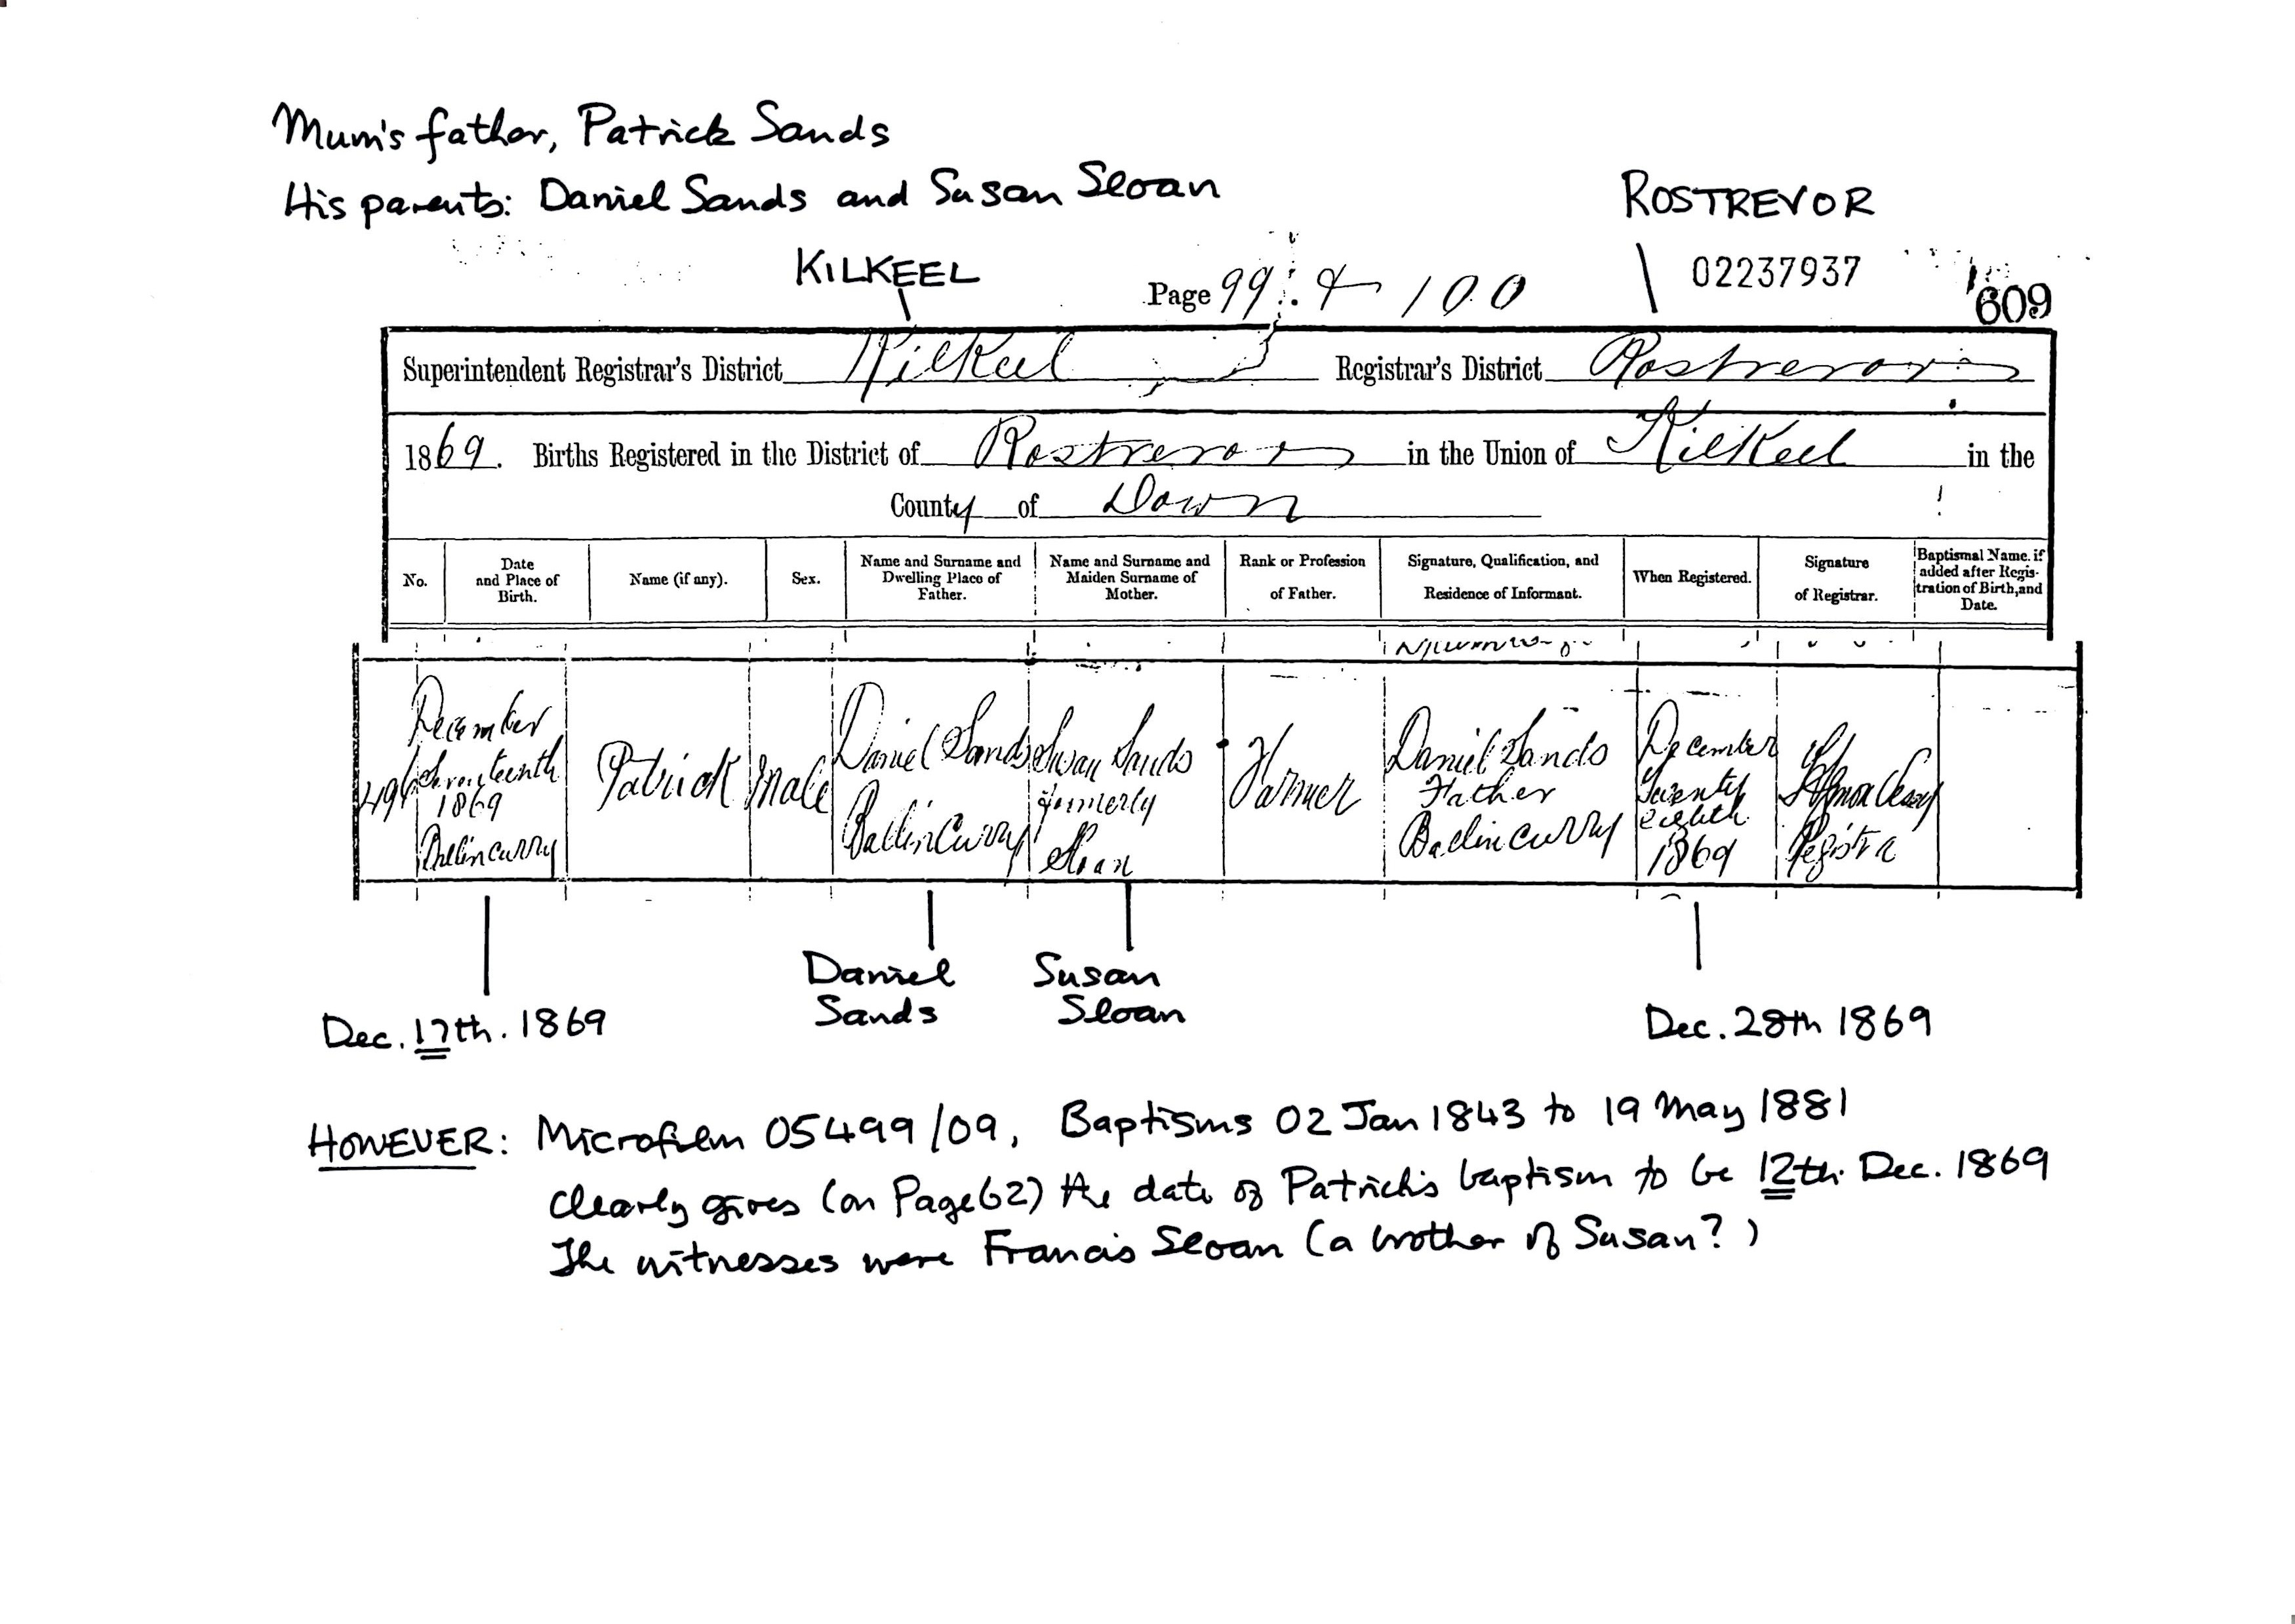 Mum's father, Patrick Sands
His parents: Daniel Sands and Susan Sloan
ROSTREVOR
KILKEEL
Page 99 & 100
02237937
609
Superintendent Registrar's District Kilkeel Registrar's District Rostrevor
1869. Births Registered in the District of Rostrevor in the Union of Kilkeel in the
County of Down
No.
Date
and Place of
Birth.
Name (if any).
Sex.
Name and Surname and
Dwelling Place of
Father.
Name and Surname and
Maiden Surname of
Mother.
Rank or Profession
of Father.
Signature, Qualification, and
Residence of Informant.
When Registered.
Signature
of Registrar.
Baptismal Name, if
added after Regis-
tration of Birth, and
Date.
December
Seventeenth
1869
Ballincurry
Patrick
Male
Daniel Sands
Ballincurry
Susan Sands
formerly
Sloan
Farmer
Daniel Sands
Father
Ballincurry
December
Twenty
eighth
1869
Registrar
Daniel
Sands
Susan
Sloan
Dec. 17th. 1869
Dec. 28th 1869
HOWEVER: Microfilm 05499/09, Baptisms 02 Jan 1843 to 19 May 1881
clearly gives (on Page 62) the date of Patrick's baptism to be 12th. Dec. 1869
The witnesses were Francis Sloan (a brother of Susan?)